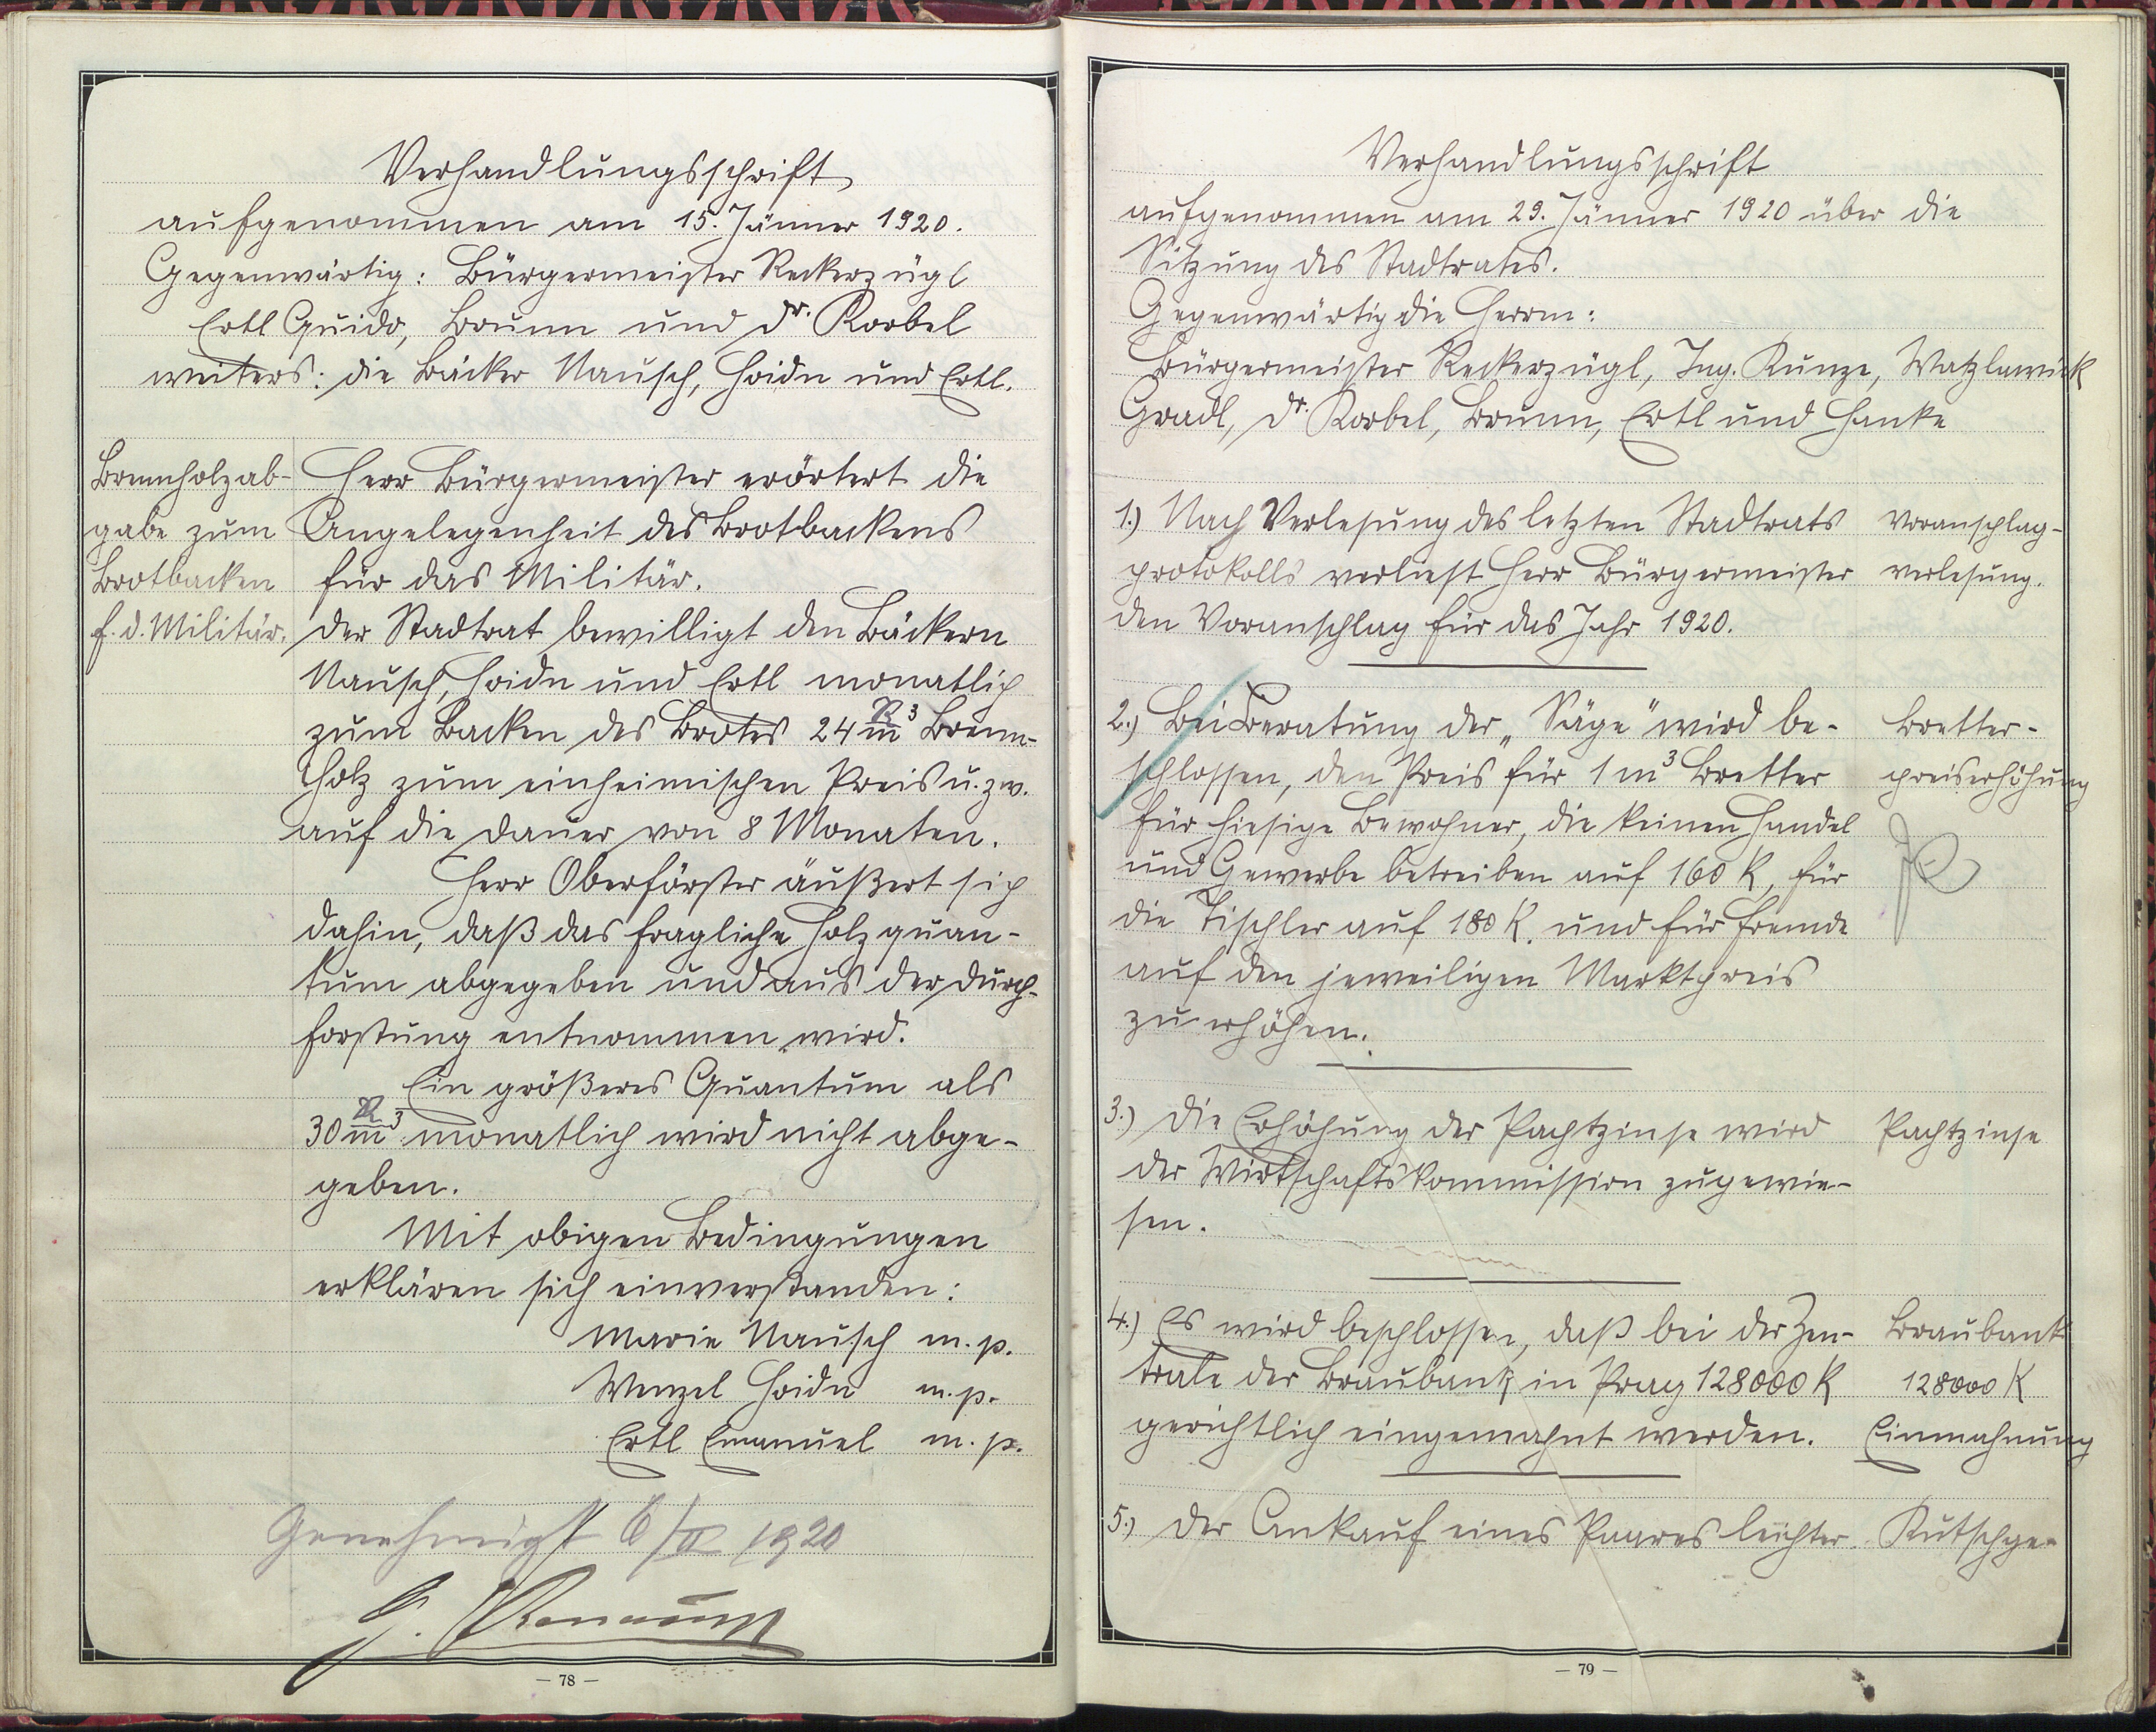 Verhandlungsschrift
aufgenommen am 15. Jänner 1920.
Gegenwärtig: Bürgermeister Reckerzügl
Ertl Guido, Brunn und Dr. Korbel
weiters: die Bäcker Nausch, Hoidn und Ertl.
Brennholzab-
gabe zum
Brotbacken
f. d. Militär.
Herr Bürgermeister erörtert die
Angelegenheit des Brotbackens
für das Militär.
Der Stadtrat bewilligt den Bäckern
Nausch, Hoidn und Ertl monatlich
zum Backen des Brotes 24 Rm³ Brenn-
holz zum einheimischen Preis u. zw.
auf die Dauer von 8 Monaten.
Herr Oberförster äußert sich
dahin, daß das fragliche Holzquan-
tum abgegeben und aus der Durch-
forstung entnommen wird.
Ein größeres Quantum als
30 Rm³ monatlich wird nicht abge-
geben.
Mit obigen Bedingungen
erklären sich einverstanden:
Marie Nausch m. p.
Wenzel Hoidn m. p.
Ertl Emanuel m. p.
Genehmigt 6/II 1920
— 78 —
Verhandlungsschrift
aufgenommen am 29. Jänner 1920 über die
Sitzung des Stadtrates.
Gegenwärtig die Herrn:
Bürgermeister Reckerzügl, Ing. Kunze, Watzlawick
Gradl, Dr. Korbel, Brunn, Ertl und Hanke
1.) Nach Verlesung des letzten Stadtrats
protokolls verliest Herr Bürgermeister
den Voranschlag für das Jahr 1920.
Voranschlag-
verlesung.
2.) Bei Beratung der „Säge" wird be-
schlossen, den Preis für 1 m³ Bretter
für hiesige Bewohner, die keinen Handel
und Gewerbe betreiben auf 160 K, für
die Tischler auf 180 K. und für Fremde
auf den jeweiligen Marktpreis
zu erhöhen.
Bretter-
preiserhöhung
3.) Die Erhöhung der Pachtzinse wird
der Wirtschaftskommission zugewie-
sen.
Pachtzinse
4.) Es wird beschlossen, daß bei der Zen-
trale der Braubank in Prag 128000 K
gerichtlich eingemahnt werden.
Braubank
128000 K
Einmahnung
5.) Der Ankauf eines Paares leichter
Kutschge-
— 79 —